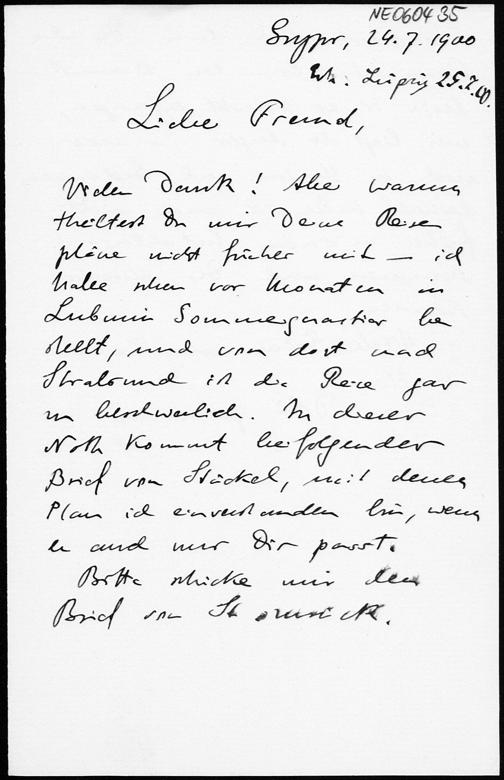 NE060435
24.7.1900
Erh. Leipzig 25.7.00.
Lieber Freund,
Vielen Dank! Aber warum
theiltest Du mir Deine Reise
pläne nicht früher mit — ich
habe schon vor Monaten in
Lubmin Sommerquartier be
stellt, und von dort nach
Stralsund ist die Reise gar
zu beschwerlich. In dieser
Noth kommt beifolgender
Brief von Stäckel, mit dessen
Plan ich einverstanden bin, wenn
er auch nur Dir passt.
Bitte schicke mir den
Brief von St zurück.